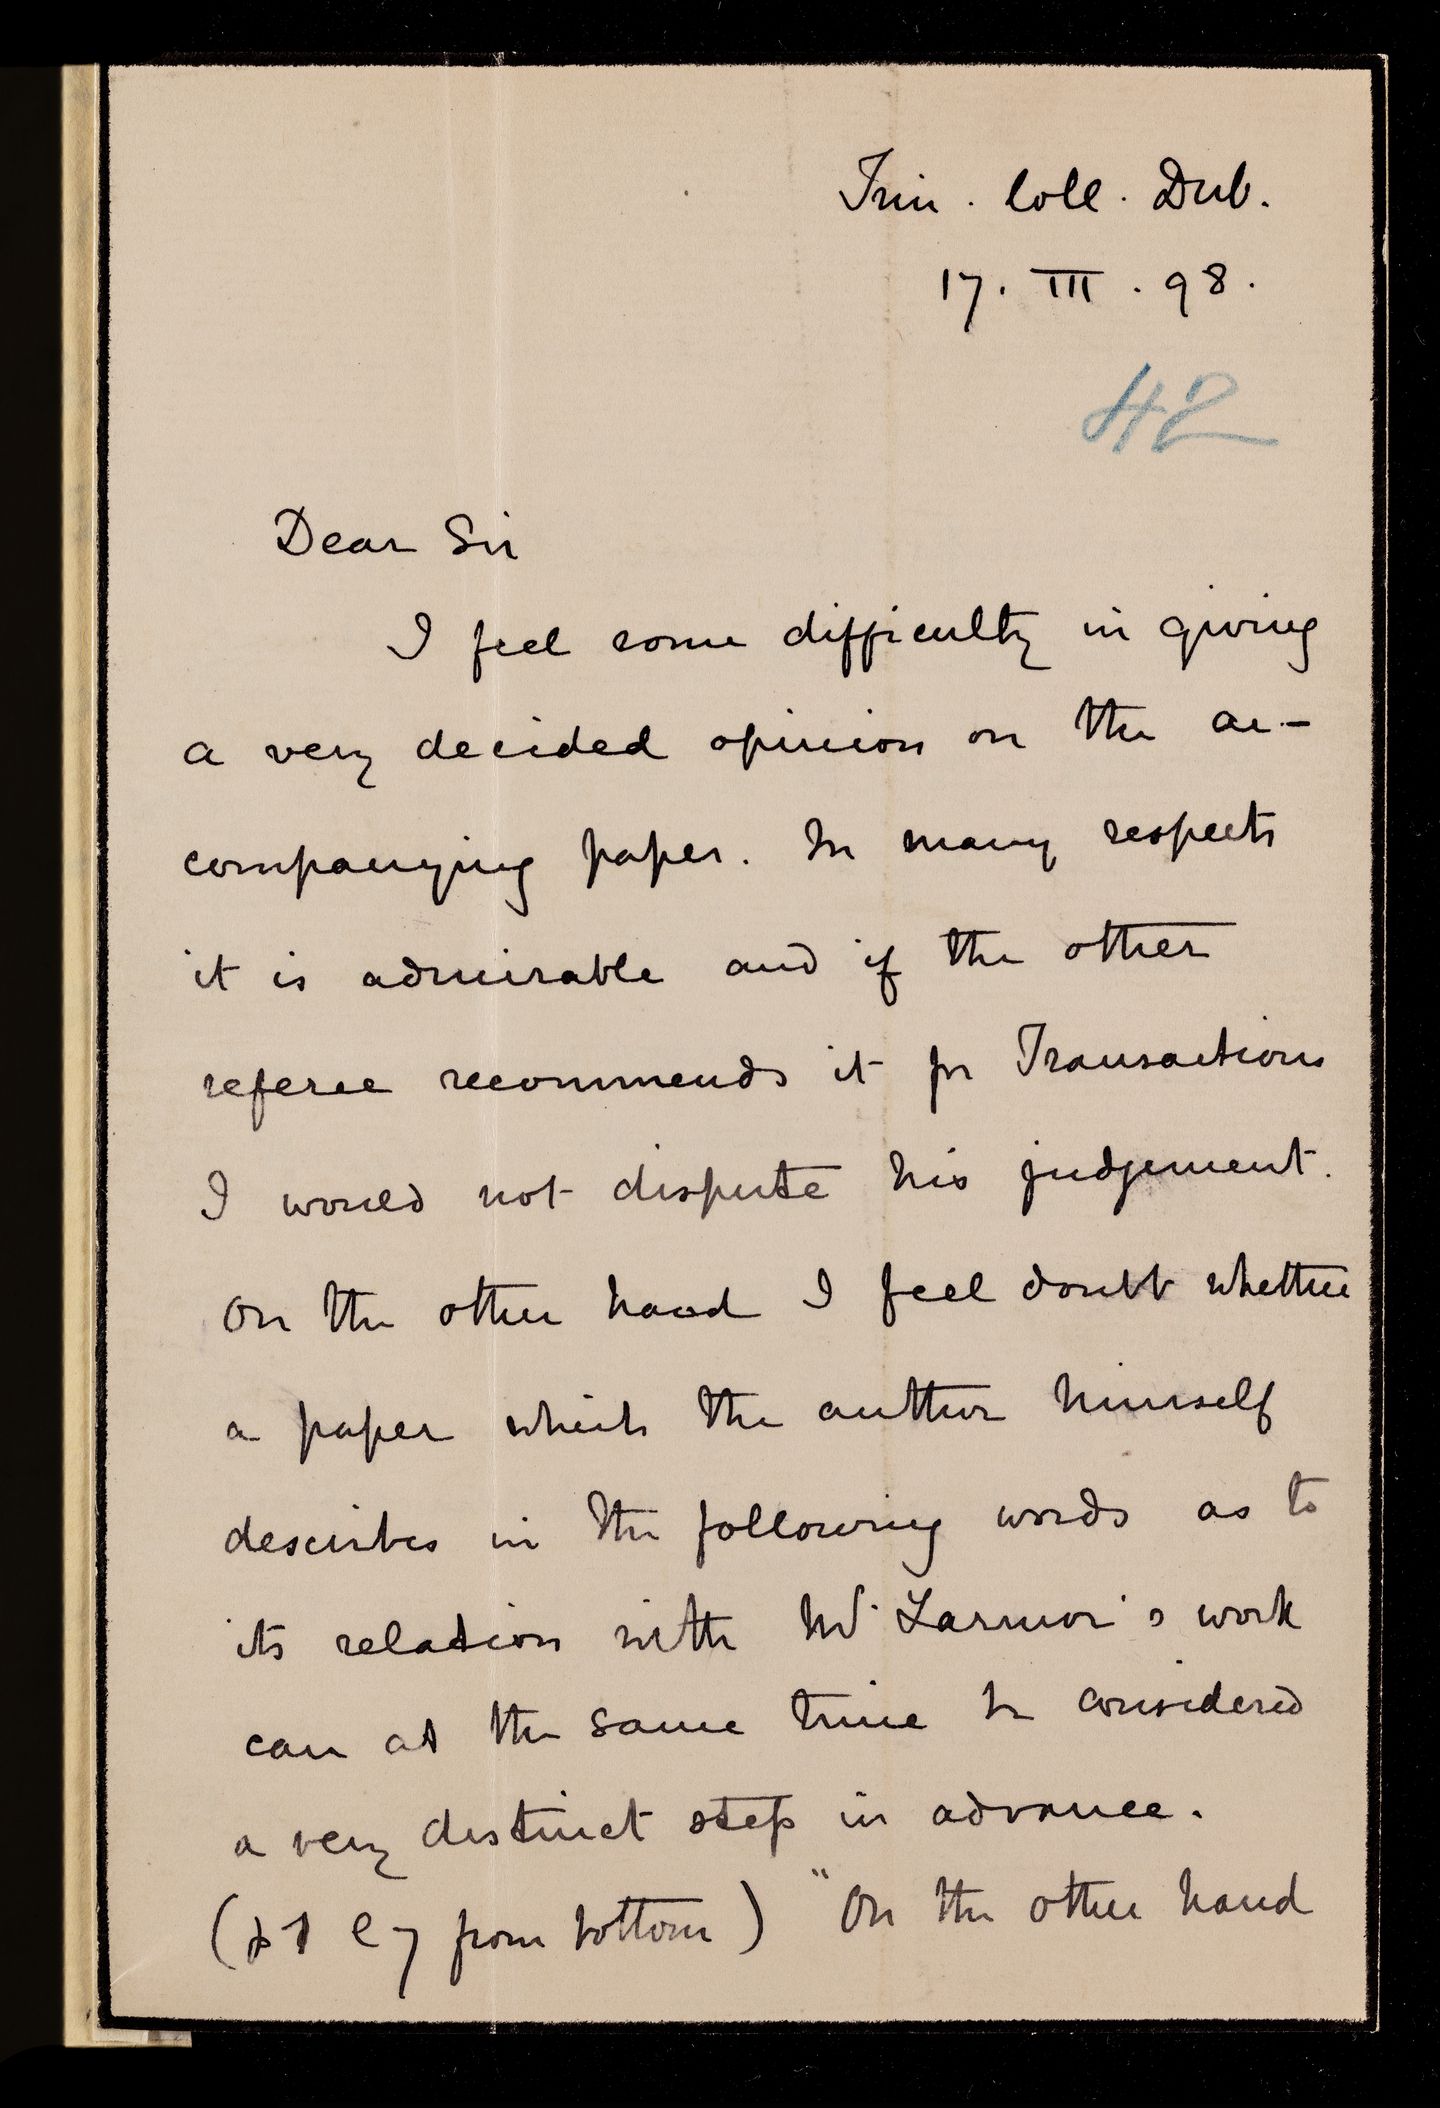 Trin. Coll. Dub.
17. III. 98.
42
Dear Sir
I feel some difficulty in giving
a very decided opinion on the ac-
companying paper. In many respects
it is admirable and if the other
referee recommends it for Transactions
I would not dispute his judgement.
On the other hand I feel doubt whether
a paper which the author himself
describes in the following words as to
its relation with Mr Larmor's work
can at the same time be considered
a very distinct step in advance.
(p 1 l 7 from bottom) "On the other hand